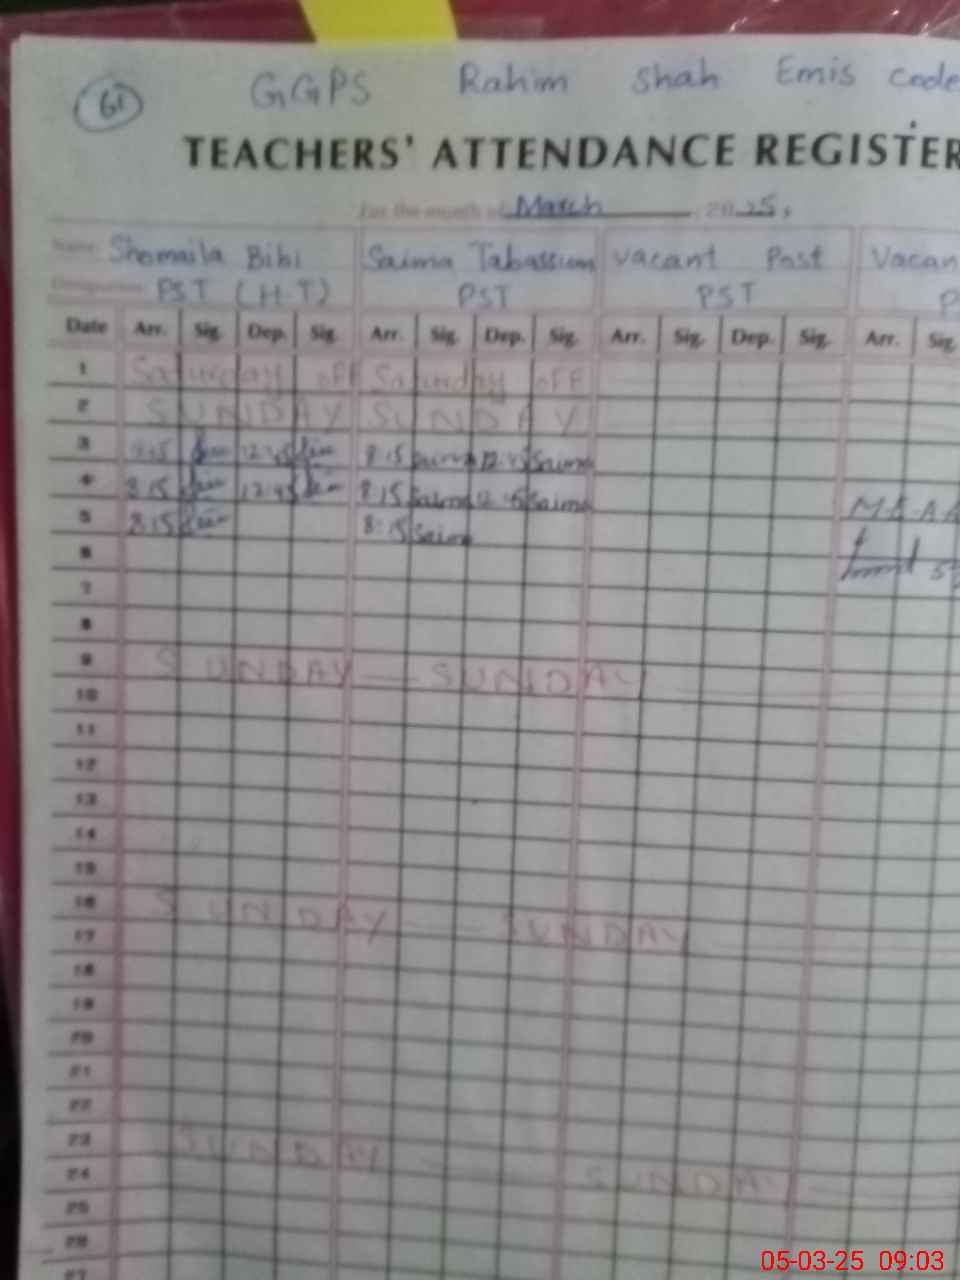 61
GGPS Rahim Shah Emis Code
TEACHERS' ATTENDANCE REGISTER
For the month of March 2025,
Name Shomaila Bibi Saima Tabassum Vacant Post Vacan
Designation PST (H.T) PST PST P
Date Arr. Sig. Dep. Sig. Arr. Sig. Dep. Sig. Arr. Sig. Dep. Sig. Arr. Sig.
1 Saturday off Saturday off
2 SUNDAY SUNDAY
3 8:15 12:45 8:15 Saima 12:45 Saima
4 8:15 12:45 8:15 Saima 12:45 Saima
5 8:15 8:15 Saima
M.E.A
6
7
8
9 SUNDAY SUNDAY
10
11
12
13
14
15
16 SUNDAY SUNDAY
17
18
19
20
21
22
23 SUNDAY SUNDAY
24
25
26
27
05-03-25 09:03